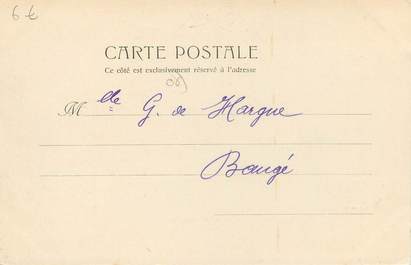 6 €
CARTE POSTALE
Ce côté est exclusivement réservé à l'adresse
Mlle G. de Hargue
Baugé